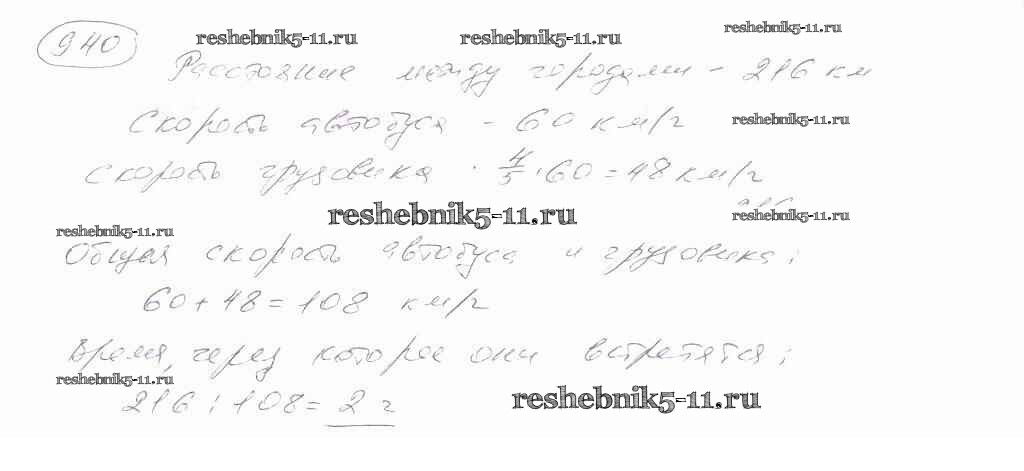 940
reshebnik5-11.ru reshebnik5-11.ru reshebnik5-11.ru
Расстояние между городами - 216 км
Скорость автобуса - 60 км/г reshebnik5-11.ru
Скорость грузовика · 4/5 · 60 = 48 км/г
reshebnik5-11.ru reshebnik5-11.ru
reshebnik5-11.ru
Общая скорость автобуса и грузовика:
60 + 48 = 108 км/г
Время, через которое они встретятся:
reshebnik5-11.ru
216 : 108 = 2 г reshebnik5-11.ru